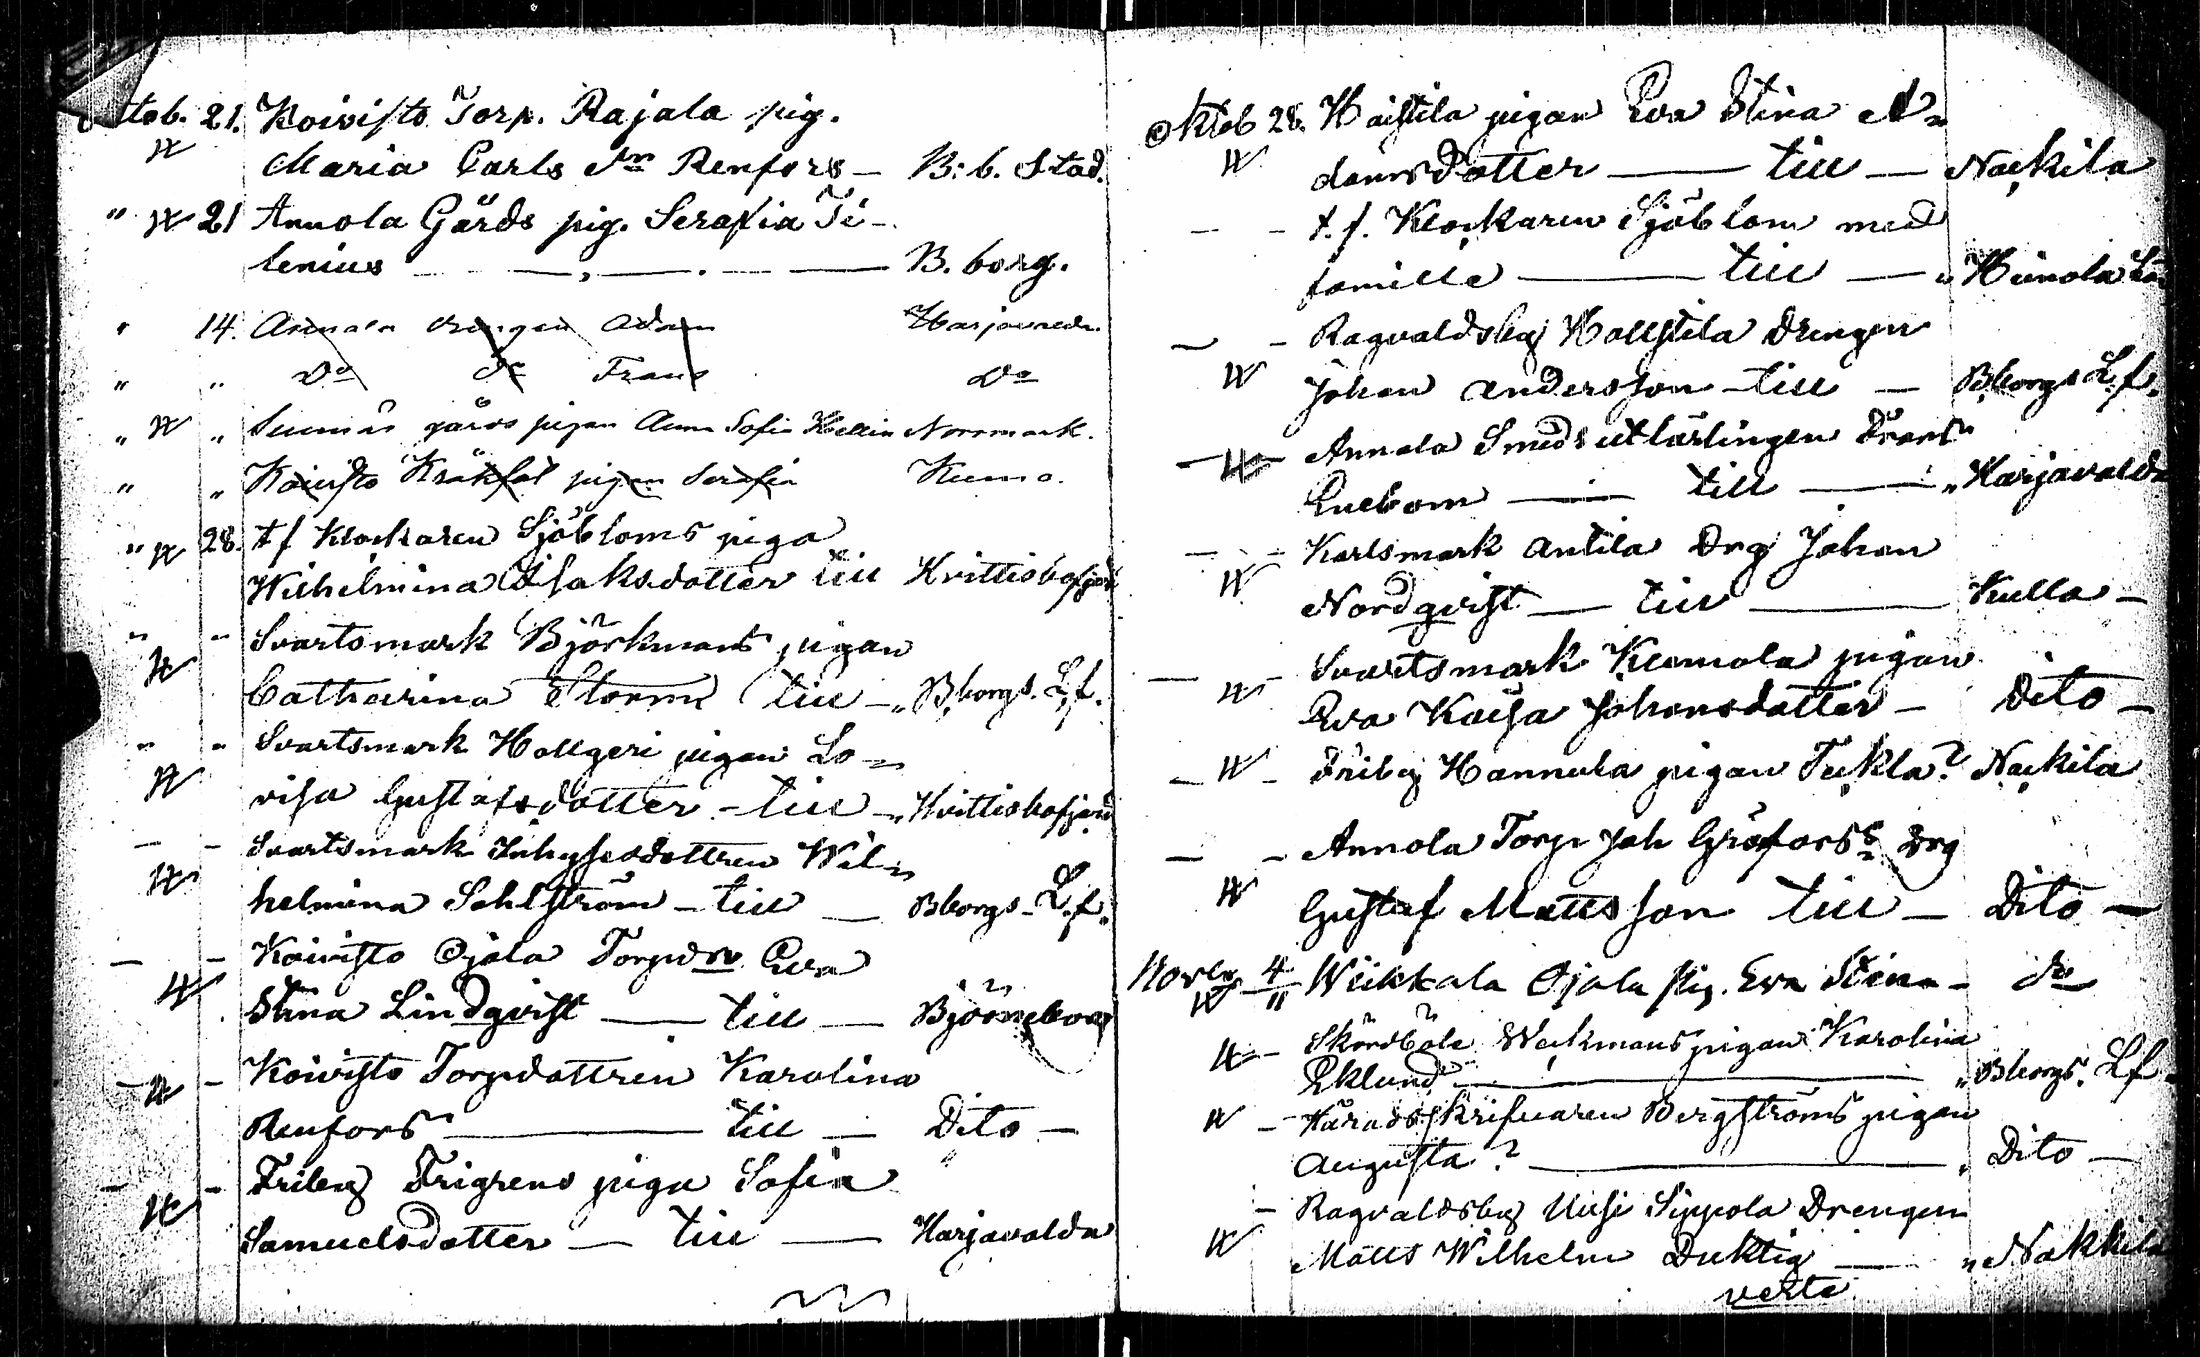 Octob. 21. Koivisto Torp. Rajala pig.
Maria Carls dr Renfors — B:b. Stad.
" 21 Annola Gårds pig. Serafia Ti-
lenius — B. borg.
" 14. Annola drengen Adam Harjavalda
" " Do do Frans Do
" " Sunnäs gårds pigan Anna Sofia Hellin Norrmark.
" " Koivisto Kräkfot pigan Serafia Kumo.
" 28. t f Klockaren Sjöbloms piga
Wilhelmina Isaksdotter till Hvittisbofjärd
" " Svartsmark Björkmans pigan
Catharina Storm till — " B,borgs. L,f.
" " Svartsmark Hollgeri pigan Lo=
visa Gustafsdotter — till — " Hvittisbofjärd
— — Svartsmark Inhysesdottren Wil=
helmina Sohlström — till — Bborgs L.f.
— — Koivisto Ojala Torpdr Eva
Stina Lindqvist — till — Björneborg
— — Koivisto Torpdottren Karolina
Renfors — till — Dito —
— — Friby Frigrens piga Sofia
Samuelsdotter — till — Harjavalda
Oktob 28. Haistila pigan Eva Stina A=
damsdotter — till — Nackila
— — t. f. Klockaren Sjöblom med
familie — till — " Heinola Ln
— — Ragvaldsby Hollstila Drengen
Johan Andersson — till — B,borgs L.f.
— Annola Smeds utlärlingen Frans
Enebom — till — " Harjavalda
— — Karlsmark Antila Drg Johan
Nordqvist — till — Kulla —
— — Svartsmark Klemola pigan
Eva Kaisa Johansdotter — Dito —
— — Friby Hannula pigan Tekla? Nackila
— — Annola Torp Joh Gröfors's Drg
Gustaf Matts son till — Dito —
Novbr 4/11 Wiikkala Ojala pig. Eva Stina — do
— Skördböle Weckmans pigan Karolina
Eklund — " Bborgs. Lf.
— Häradsskrifvaren Bergströms pigan
Augusta? — " Dito —
— Ragvaldsby Uusi Sippola Drengen
Matts Wilhelm Duktig — " Nakkila
verte